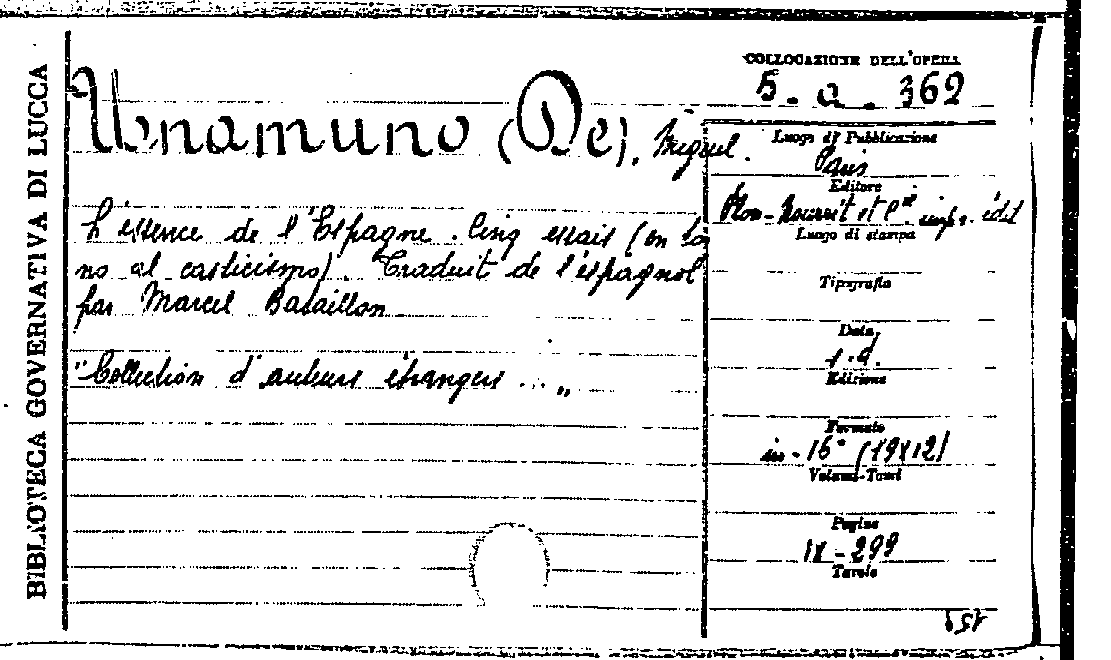 BIBLIOTECA GOVERNATIVA DI LUCCA
COLLOCAZIONE DELL'OPERA
5. a. 362
Unamuno (De), Miguel.
L'essence de l'Espagne. Cinq essais (en tor
no al casticismo). Traduit de l'espagnol
par Marcel Bataillon
"Collection d'auteurs étrangers ... „
Luogo di Pubblicazione
Paris
Editore
Plon-Nourrit et C.ie imp. édit
Luogo di stampa
Tipografia
Data
s.d.
Edizione
Formato
in-16° (19x12)
Volumi-Tomi
Pagine
IX-299
Tavole